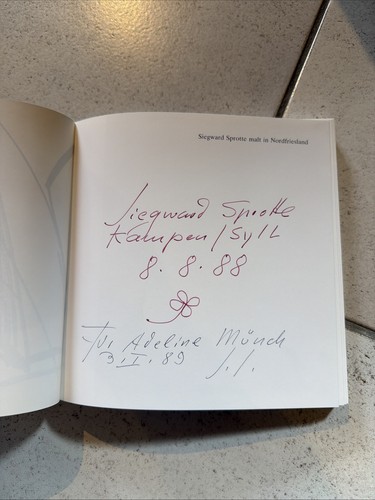 Siegward Sprotte malt in Nordfriesland
Siegward Sprotte
Kampen/Sylt
8.8.88
Für Adeline Münch
3.I.89
S.S.